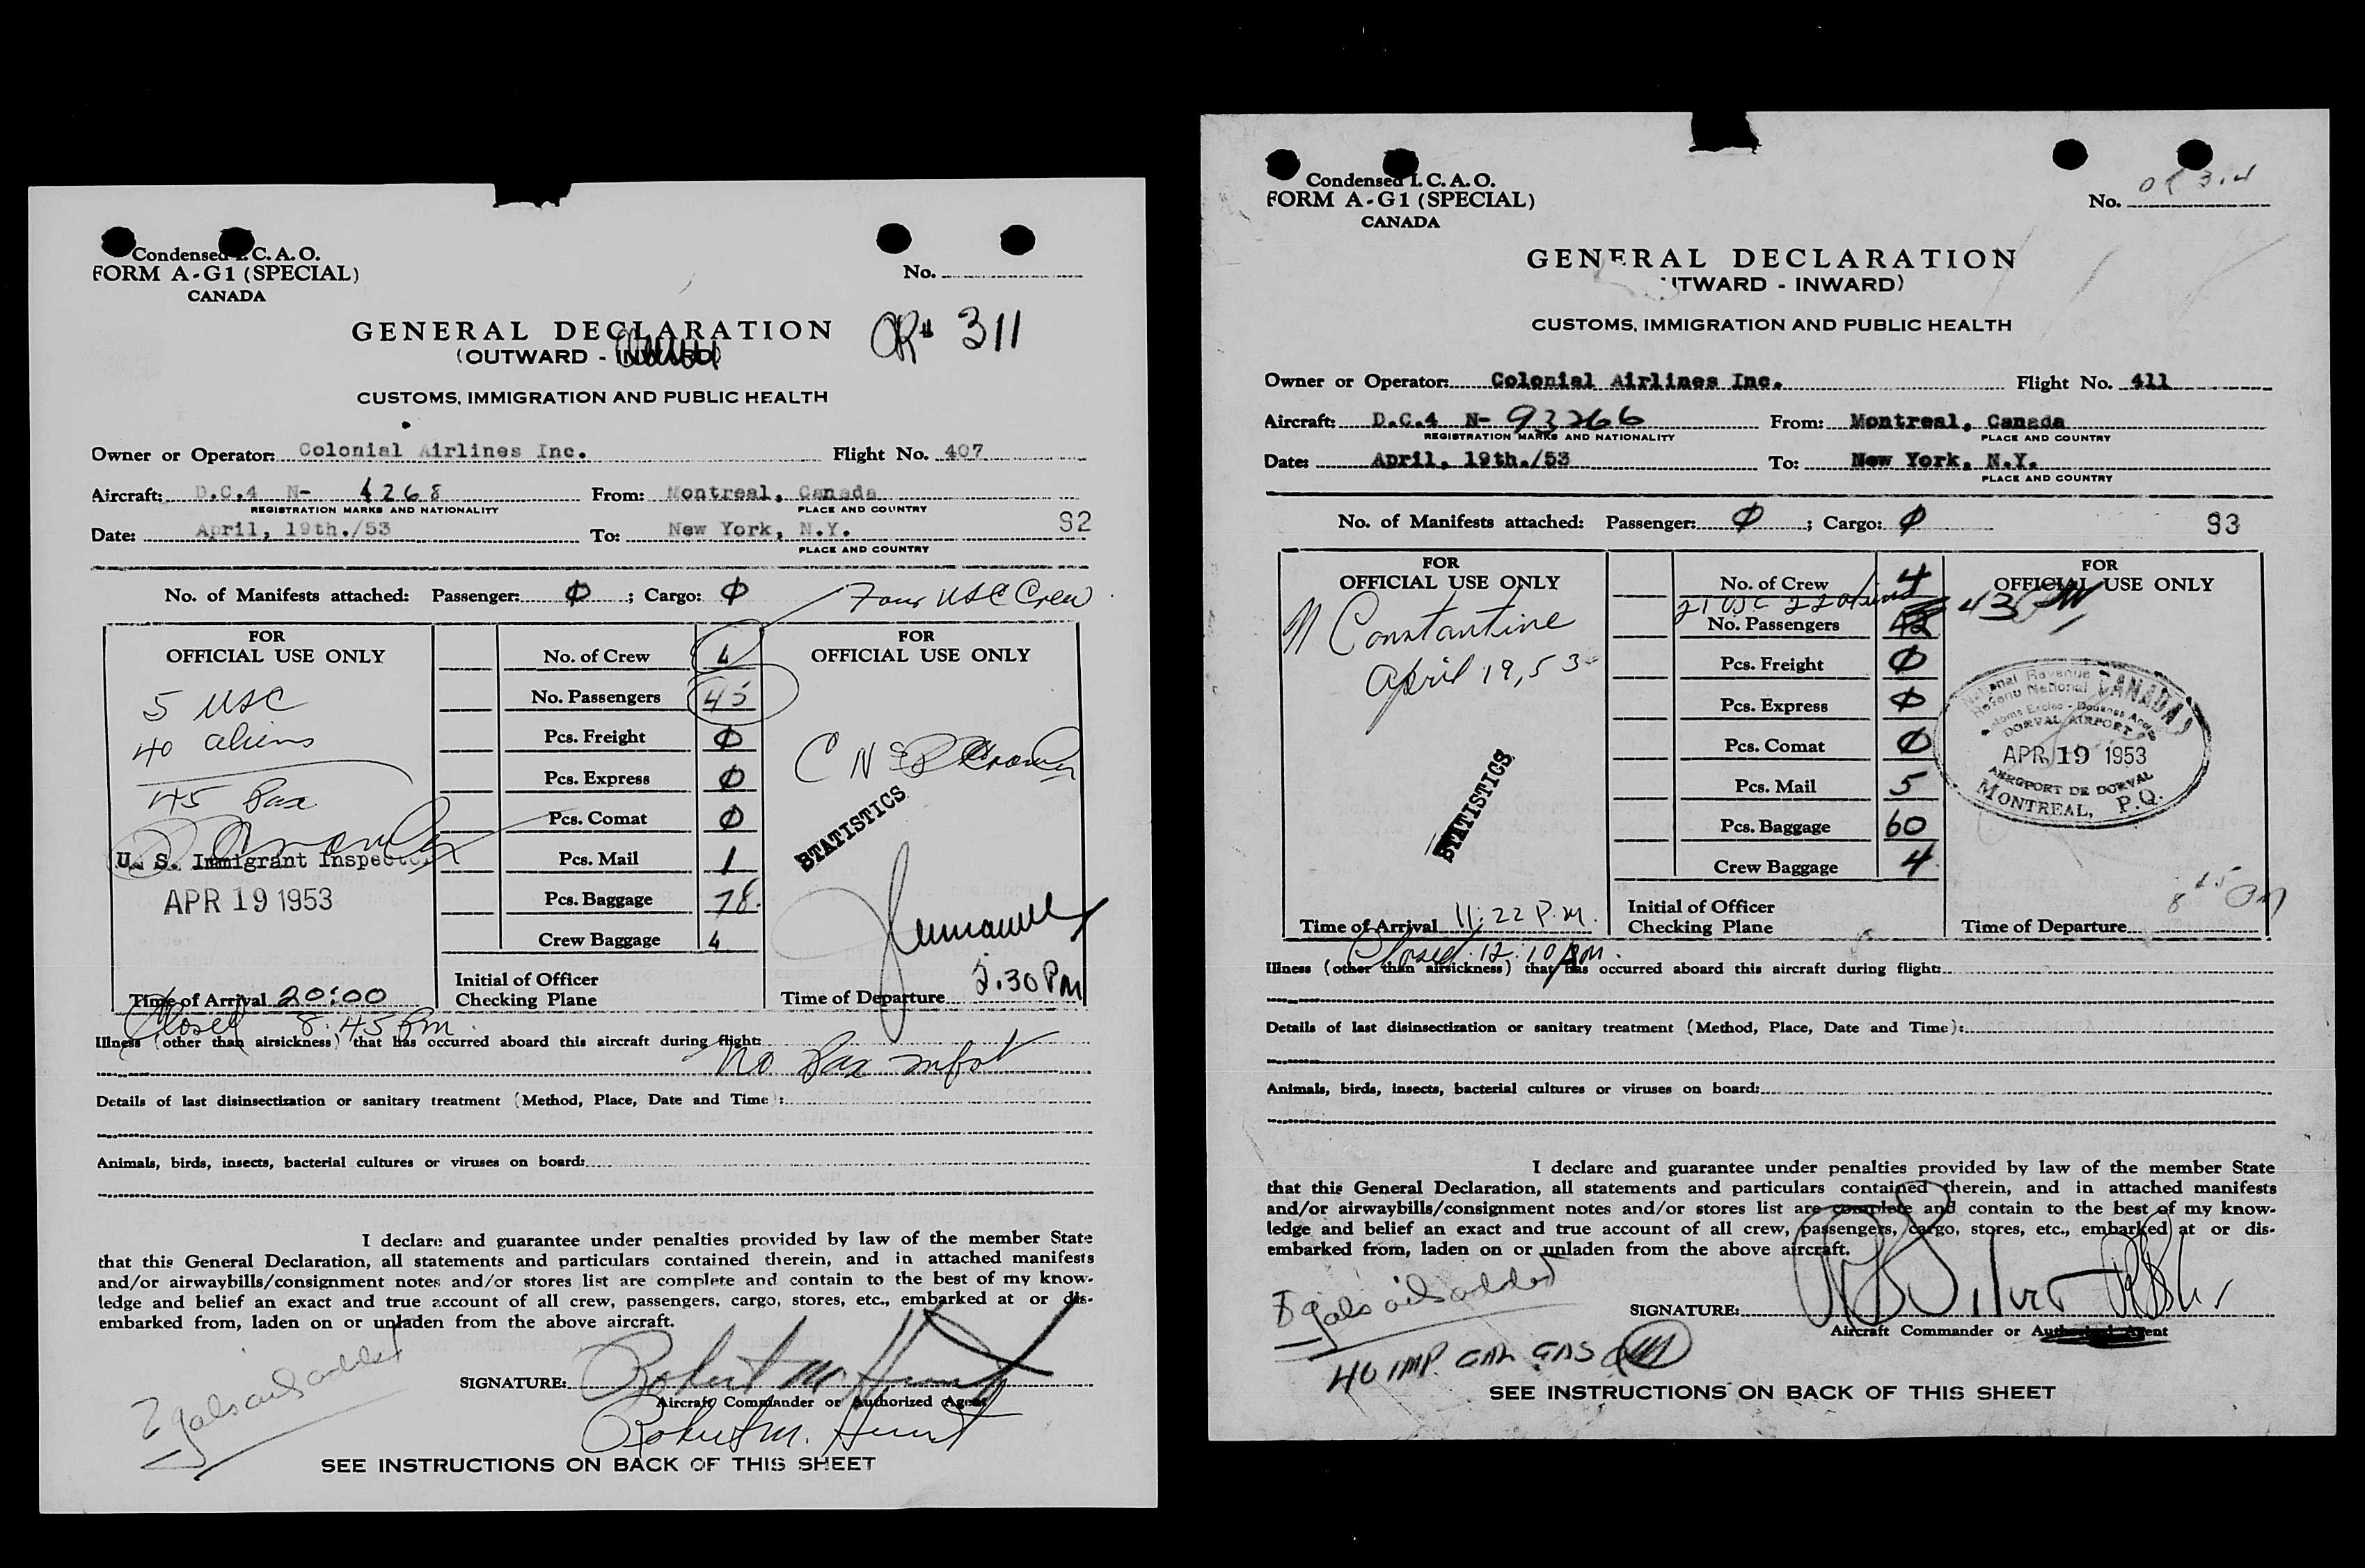 Condensed I. C. A. O.
FORM A-G1 (SPECIAL)
CANADA
No.
GENERAL DECLARATION
(OUTWARD - INWARD)
OR# 311
CUSTOMS, IMMIGRATION AND PUBLIC HEALTH
Owner or Operator: Colonial Airlines Inc. Flight No. 407
Aircraft: D.C.4 N- 4268 From: Montreal, Canada
REGISTRATION MARKS AND NATIONALITY PLACE AND COUNTRY
Date: April, 19th./53 To: New York, N.Y. S2
PLACE AND COUNTRY
No. of Manifests attached: Passenger: Ø ; Cargo: Ø Four USC Crew
FOR
OFFICIAL USE ONLY
5 USC
40 aliens
45 Pax
U. S. Immigrant Inspector
APR 19 1953
Time of Arrival 20:00
Closed 8:45 Pm
No. of Crew 4
No. Passengers 45
Pcs. Freight Ø
Pcs. Express Ø
Pcs. Comat Ø
Pcs. Mail 1
Pcs. Baggage 78
Crew Baggage 4
Initial of Officer
Checking Plane
FOR
OFFICIAL USE ONLY
STATISTICS
Time of Departure .30 PM
Illness (other than airsickness) that has occurred aboard this aircraft during flight:
No Pax
Details of last disinsectization or sanitary treatment (Method, Place, Date and Time):
Animals, birds, insects, bacterial cultures or viruses on board:
I declare and guarantee under penalties provided by law of the member State
that this General Declaration, all statements and particulars contained therein, and in attached manifests
and/or airwaybills/consignment notes and/or stores list are complete and contain to the best of my know-
ledge and belief an exact and true account of all crew, passengers, cargo, stores, etc., embarked at or dis-
embarked from, laden on or unladen from the above aircraft.
gals oil added
SIGNATURE: Robert M. Hunt
Aircraft Commander or Authorized Agent
Robert M. Hunt
SEE INSTRUCTIONS ON BACK OF THIS SHEET
Condensed I. C. A. O.
FORM A-G1 (SPECIAL)
CANADA
No.
GENERAL DECLARATION
UTWARD - INWARD)
CUSTOMS, IMMIGRATION AND PUBLIC HEALTH
Owner or Operator: Colonial Airlines Inc. Flight No. 411
Aircraft: D.C.4 N- 93266 From: Montreal, Canada
REGISTRATION MARKS AND NATIONALITY PLACE AND COUNTRY
Date: April, 19th./53 To: New York, N.Y.
PLACE AND COUNTRY
No. of Manifests attached: Passenger: Ø ; Cargo: Ø S3
FOR
OFFICIAL USE ONLY
N Constantine
April 19, 53
STATISTICS
Time of Arrival 11:22 P.M.
Closed: 12:10 Am.
No. of Crew 4
21 USC 22 aliens
No. Passengers 42 43
Pcs. Freight Ø
Pcs. Express Ø
Pcs. Comat Ø
Pcs. Mail 5
Pcs. Baggage 60
Crew Baggage 4
Initial of Officer
Checking Plane
FOR
OFFICIAL USE ONLY
National Revenue
Revenu National
CANADA
Customs Excise - Douanes Accise
DORVAL AIRPORT
APR 19 1953
AEROPORT DE DORVAL
MONTREAL, P.Q.
Time of Departure
Illness (other than airsickness) that has occurred aboard this aircraft during flight:
Details of last disinsectization or sanitary treatment (Method, Place, Date and Time):
Animals, birds, insects, bacterial cultures or viruses on board:
I declare and guarantee under penalties provided by law of the member State
that this General Declaration, all statements and particulars contained therein, and in attached manifests
and/or airwaybills/consignment notes and/or stores list are complete and contain to the best of my know-
ledge and belief an exact and true account of all crew, passengers, cargo, stores, etc., embarked at or dis-
embarked from, laden on or unladen from the above aircraft.
gals oil added
SIGNATURE:
Aircraft Commander or Authorized Agent
40 IMP. GAL GAS
SEE INSTRUCTIONS ON BACK OF THIS SHEET